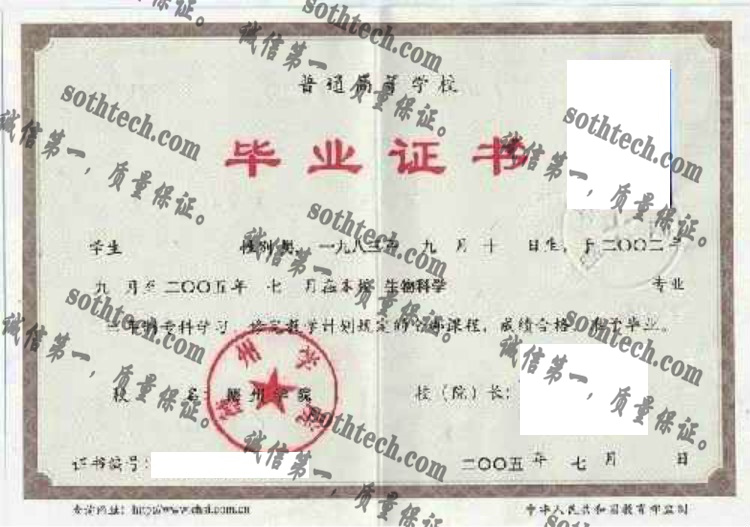 普通高等学校
毕业证书
学生 性别男，一九八三年 九 月 十 日生，于二〇〇二年
九 月至二〇〇五年 七 月在本校 生物科学 专业
三年制专科学习，修完教学计划规定的全部课程，成绩合格，准予毕业。
校 名： 州学院 校（院）长：
证书编号：
二〇〇五年 七 月 日
查询网址：http://www.chsi.com.cn 中华人民共和国教育部监制
sothtech.com
诚信第一，质量保证。
sothtech.com
诚信第一，质量保证。
sothtech.com
诚信第一，质量保证。
sothtech.com
诚信第一，质量保证。
sothtech.com
诚信第一，质量保证。
sothtech.com
诚信第一，质量保证。
sothtech.com
诚信第一，质量保证。